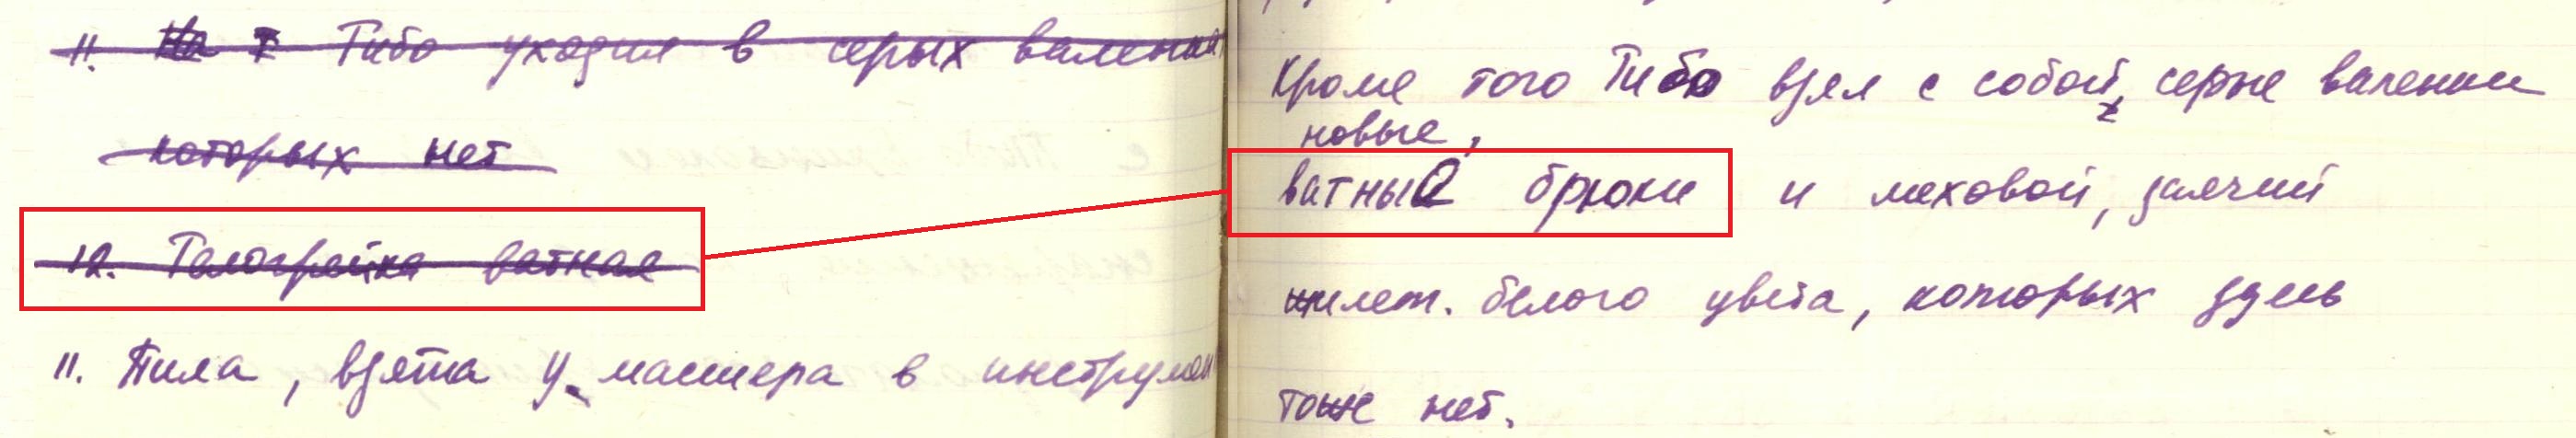 11. На Т Тибо уходил в серых валенках
которых нет
12. Телогрейка ватная
11. Пила, взята у мастера в инструмен
Кроме того Тибо взял с собой, серые валенки
новые,
ватные брюки и меховой, заячий
жилет. белого цвета, которых здесь
тоже нет.